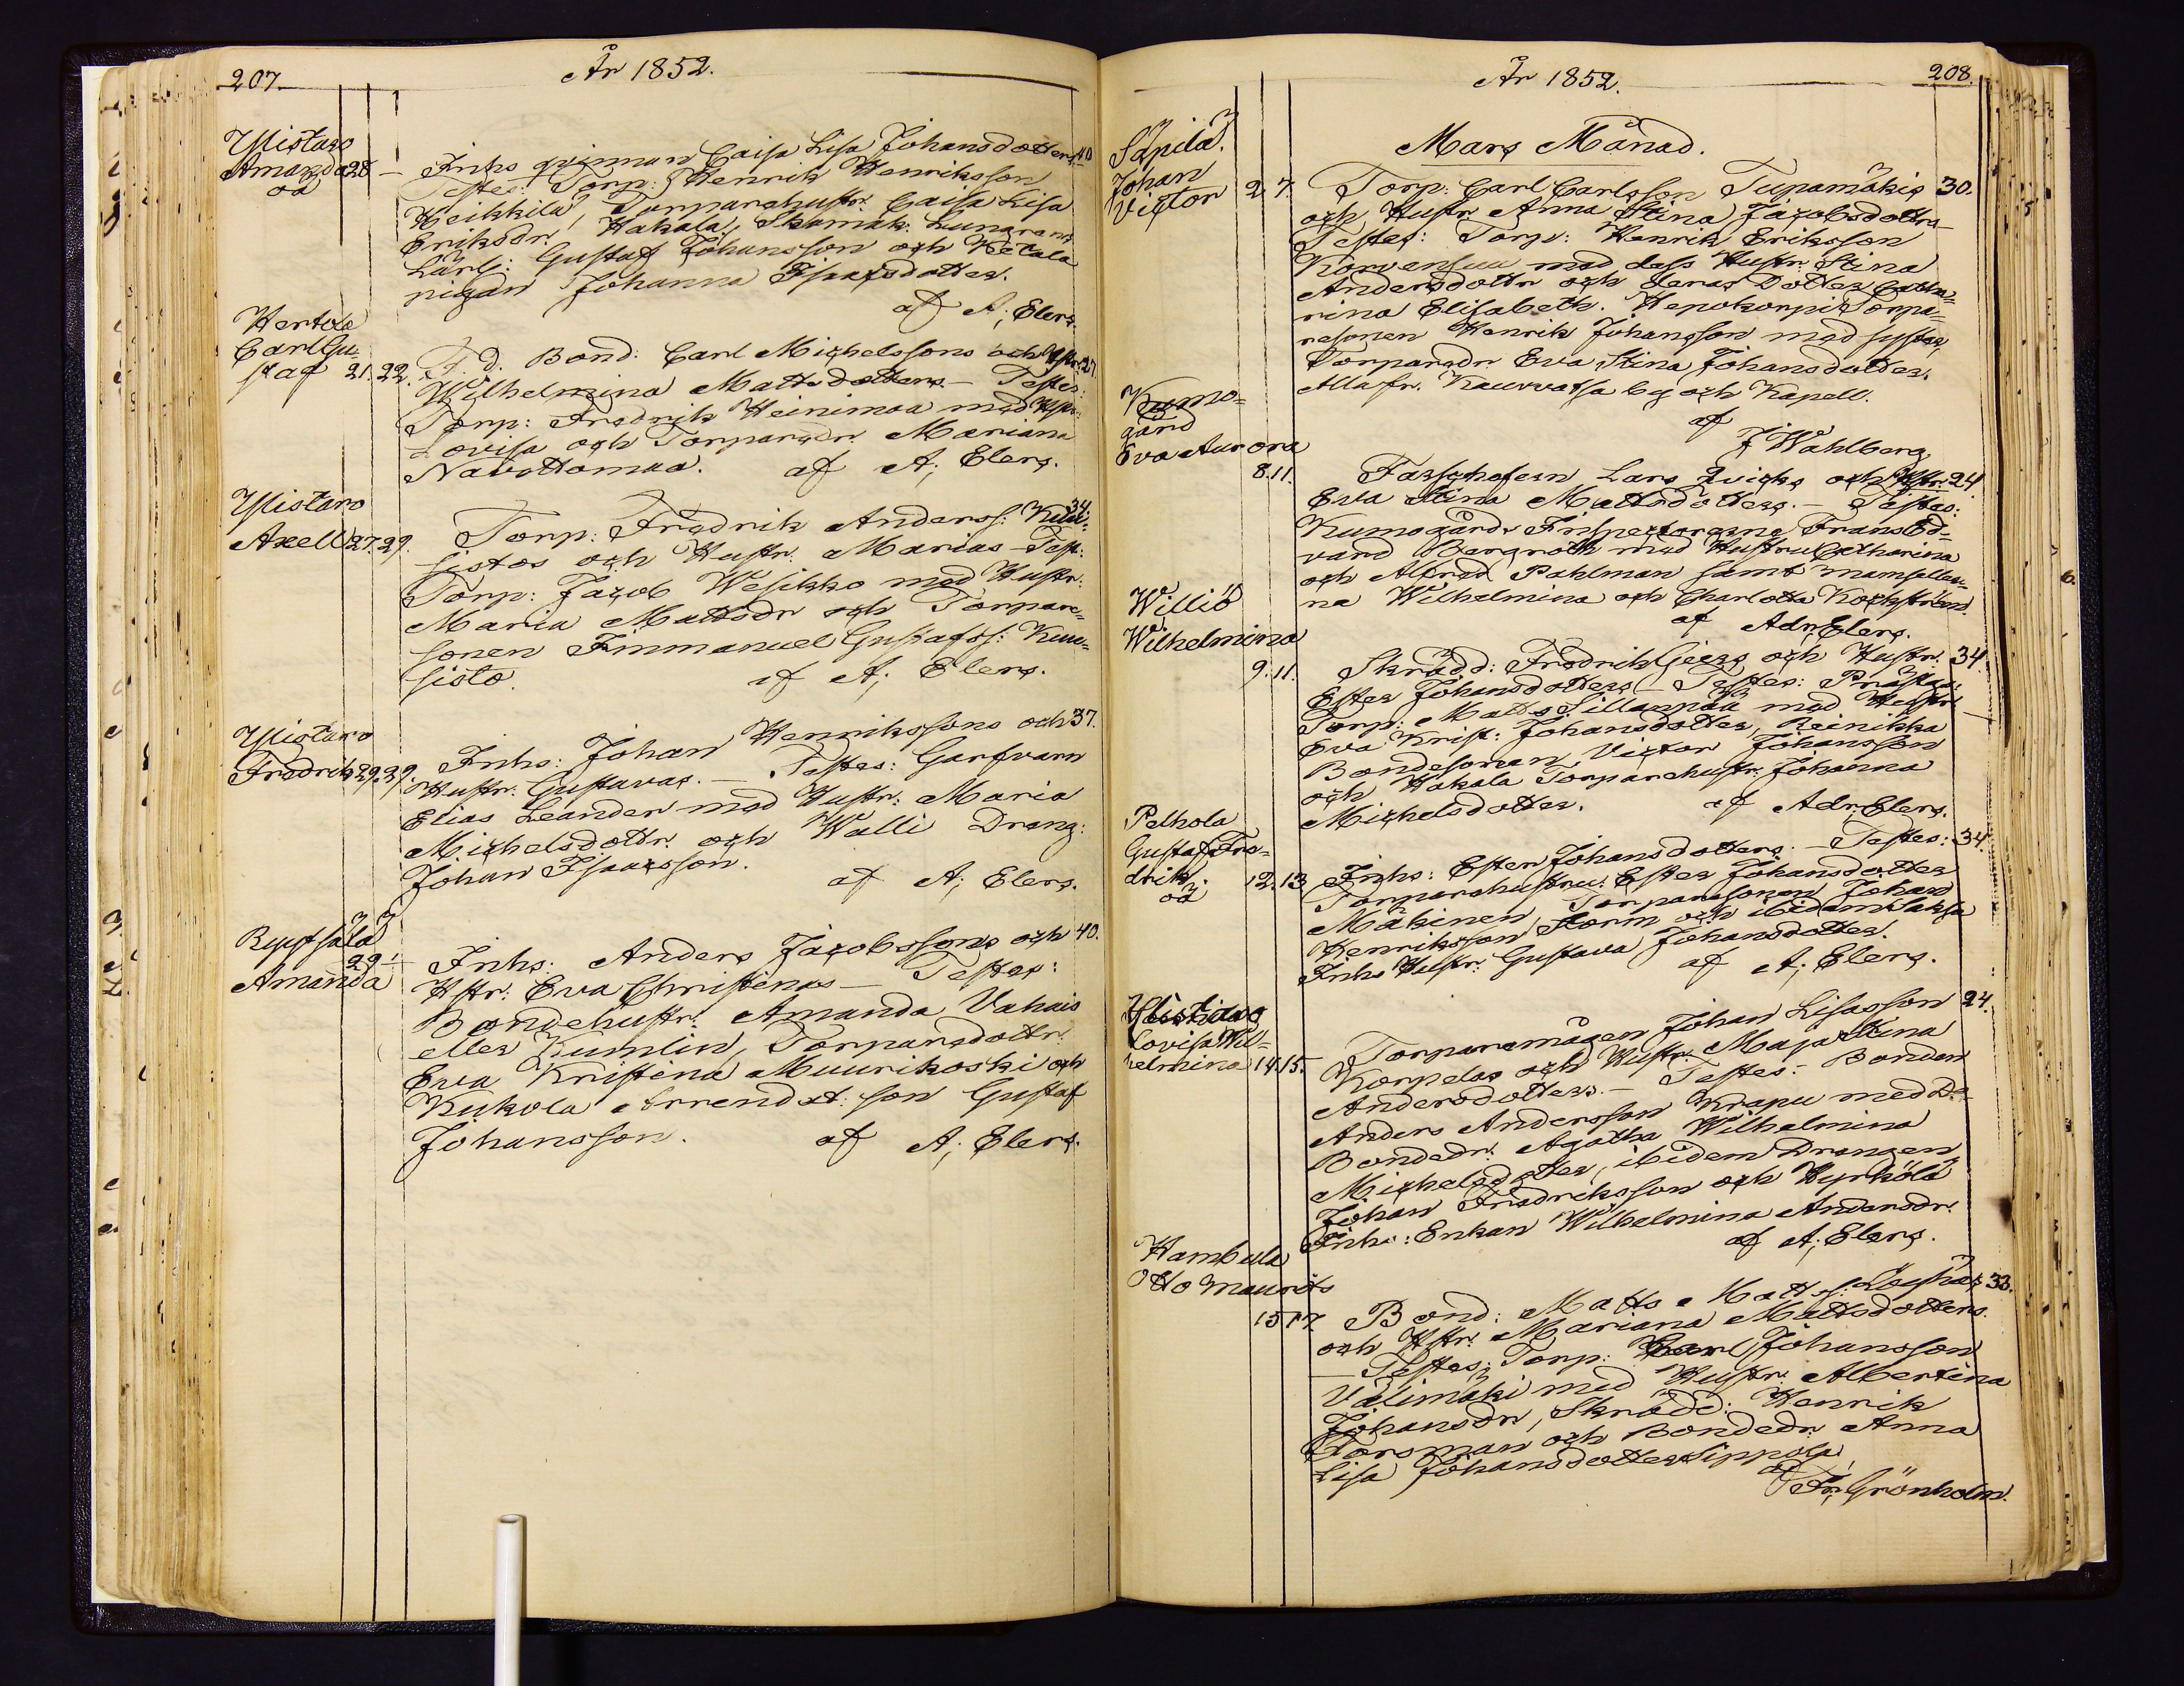 207.
År 1852.
Ylistaro
Amanda 28 –
oä
Inhs qvinnan Caisa Lisa Johansdotters 40
Testes: Torp: Henrik Henriksson
Heikkilä, Torparehustr. Caisa Lisa
Eriksdr. Hakala, Skomak:
Lärl: Gustaf Johansson och
pigan Johanna Isaksdotter.
af A; Elers.
Hertola
Carl Gu-
staf 21. 22.
F. d. Bond: Carl Michelssons och Hstr: 27.
Wilhelmina Mattsdotters – Testes:
Torp: Fredrik Heinimaa med Hstr:
Lovisa och Torparedr. Mariana
Navottomaa. af A; Elers.
Ylistaro
Axell 27. 29.
34.
Torp: Fredrik Anderss:
sistos och Hustr. Marias – Test:
Torp: Jacob Wesikko med Hustr:
Maria Mattsdr och Torpare-
sonen Immanuel Gustafss: Kuu-
sisto. af A; Elers.
Ylistaro
Fredrik 29. 29.
Inhs: Johan Henrikssons och 37.
Hustr: Gustavas. – Testes: Garfvaren
Elias Leander med Hustr: Maria
Michelsdottr. och Walli Dräng:
Johan Isaacsson.
af A; Elers.
Ryytsälä
29.
Amanda
Inhs: Anders Jacobssons och 40.
Hstr: Eva Christinas – Testes:
Bondehustr: Amanda Vahais
eller Kumlin, Torparedottr.
Eva Kristina Muurikoski och
Kukola Arrendat: son Gustaf
Johansson. af A; Elers.
År 1852.
208.
Mars Månad.
Säpilä
Johan
Victor 2. 7.
Torp: Carl Carlsson Tupamäkis 30.
och Hustr Anna Stina Jacobsdottrs
Testes: Torp: Henrik Eriksson
Korvensuu med dess Hustr. Stina
Andersdottr och deras Dotter Catha-
rina Elisabeth. Hepokorpi Torpa-
resonen Henrik Johansson med syster,
Torparedr Eva Stina Johansdotter.
Alla fr. Kauvatsa by och Kapell.
af
J Wahlberg
Kumo-
gård
Eva Aurora
8. 11.
Lars Qvicks och Hstr: 24.
Eva Stina Mattsdotters. – Testes:
Kumogårds Inspectorerne Frans Ed-
vard Bergroth med Hustru Catharina
och Alfred Pahlman samt mamseller-
na Wilhelmina och Charlotta
af Adr; Elers.
Williö
Wilhelmina
9. 11.
Skrädd: Fredrik och Hustr. 34.
Ester Johansdotters – Testes:
Torp: Matts Sillanpää med Hustr
Eva Krist: Johansdotter, Reinikka
Bondesonen Victor Johansson
och Hakala Torparehustr, Johanna
Michelsdotter. af Adr; Elers.
Pelhola
Gustaf Fre-
drik 12. 13.
oä
Inhs: Ester Johansdotters. – Testes: 34.
Torparehustru: Ester Johansdotter
Mäkinen, Torparesonen Johan
Henriksson Storm och ibidem
Inhs Hustr: Gustava Johansdotter.
af A; Elers.
Ylistaro
Lovisa Wil-
helmina 14. 15.
Torparemågen Johan Lisasson 24.
Korpelas och Hustr. Maja Stina
Andersdotters. – Testes: Bonden
Anders Andersson Krapu med
Bondedr: Agatha Wilhelmina
Michelsdotter, ibidem Drängen
Johan Fredriksson och Hyrkölä
Inhs: Enkan Wilhelmina Andersdr.
af A; Elers.
Hambula
Otto Maurits
15 17.
Bond: Matts Mattss: 33.
och Hstr. Mariana Mattsdotters.
– Testes: Torp: Carl Johansson
Välimäki med Hustr. Albertina
Johansdr, Skrädd: Henrik
Forsman och Bondedr. Anna
Lisa Johansdotter Sippola
af
Fr; Grönholm.